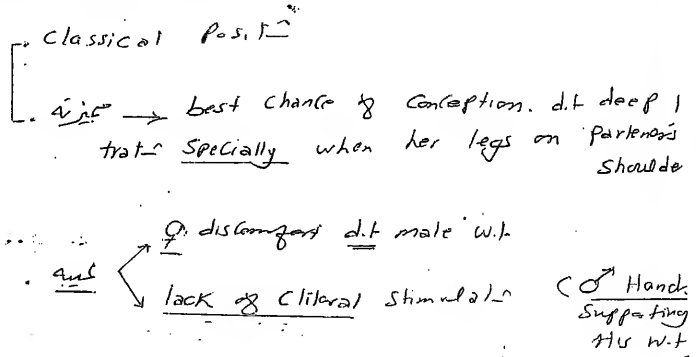 Classical Posit
ميزته → best chance of conception. d.t deep
trat specially when her legs on partener's
shoulde
♀ discomfort d.t male w.t.
عيبه
lack of Clitoral stimulat
(♂ Hand
Supporting
His w.t